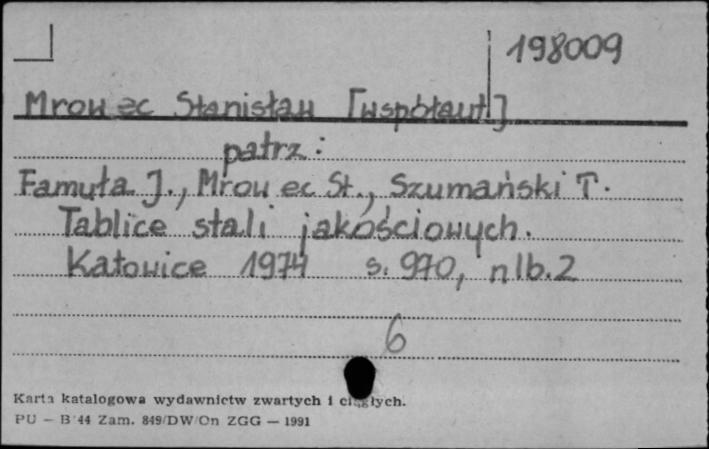 198009
Mrowec Stanisław [współaut]
patrz:
Famuła J., Mrowec St., Szumański T.
Tablice stali jakościowych.
Katowice 1974 s. 970, nlb. 2
6
Karta katalogowa wydawnictw zwartych i ciągłych.
PU — B 44 Zam. 849/DW/On ZGG — 1991